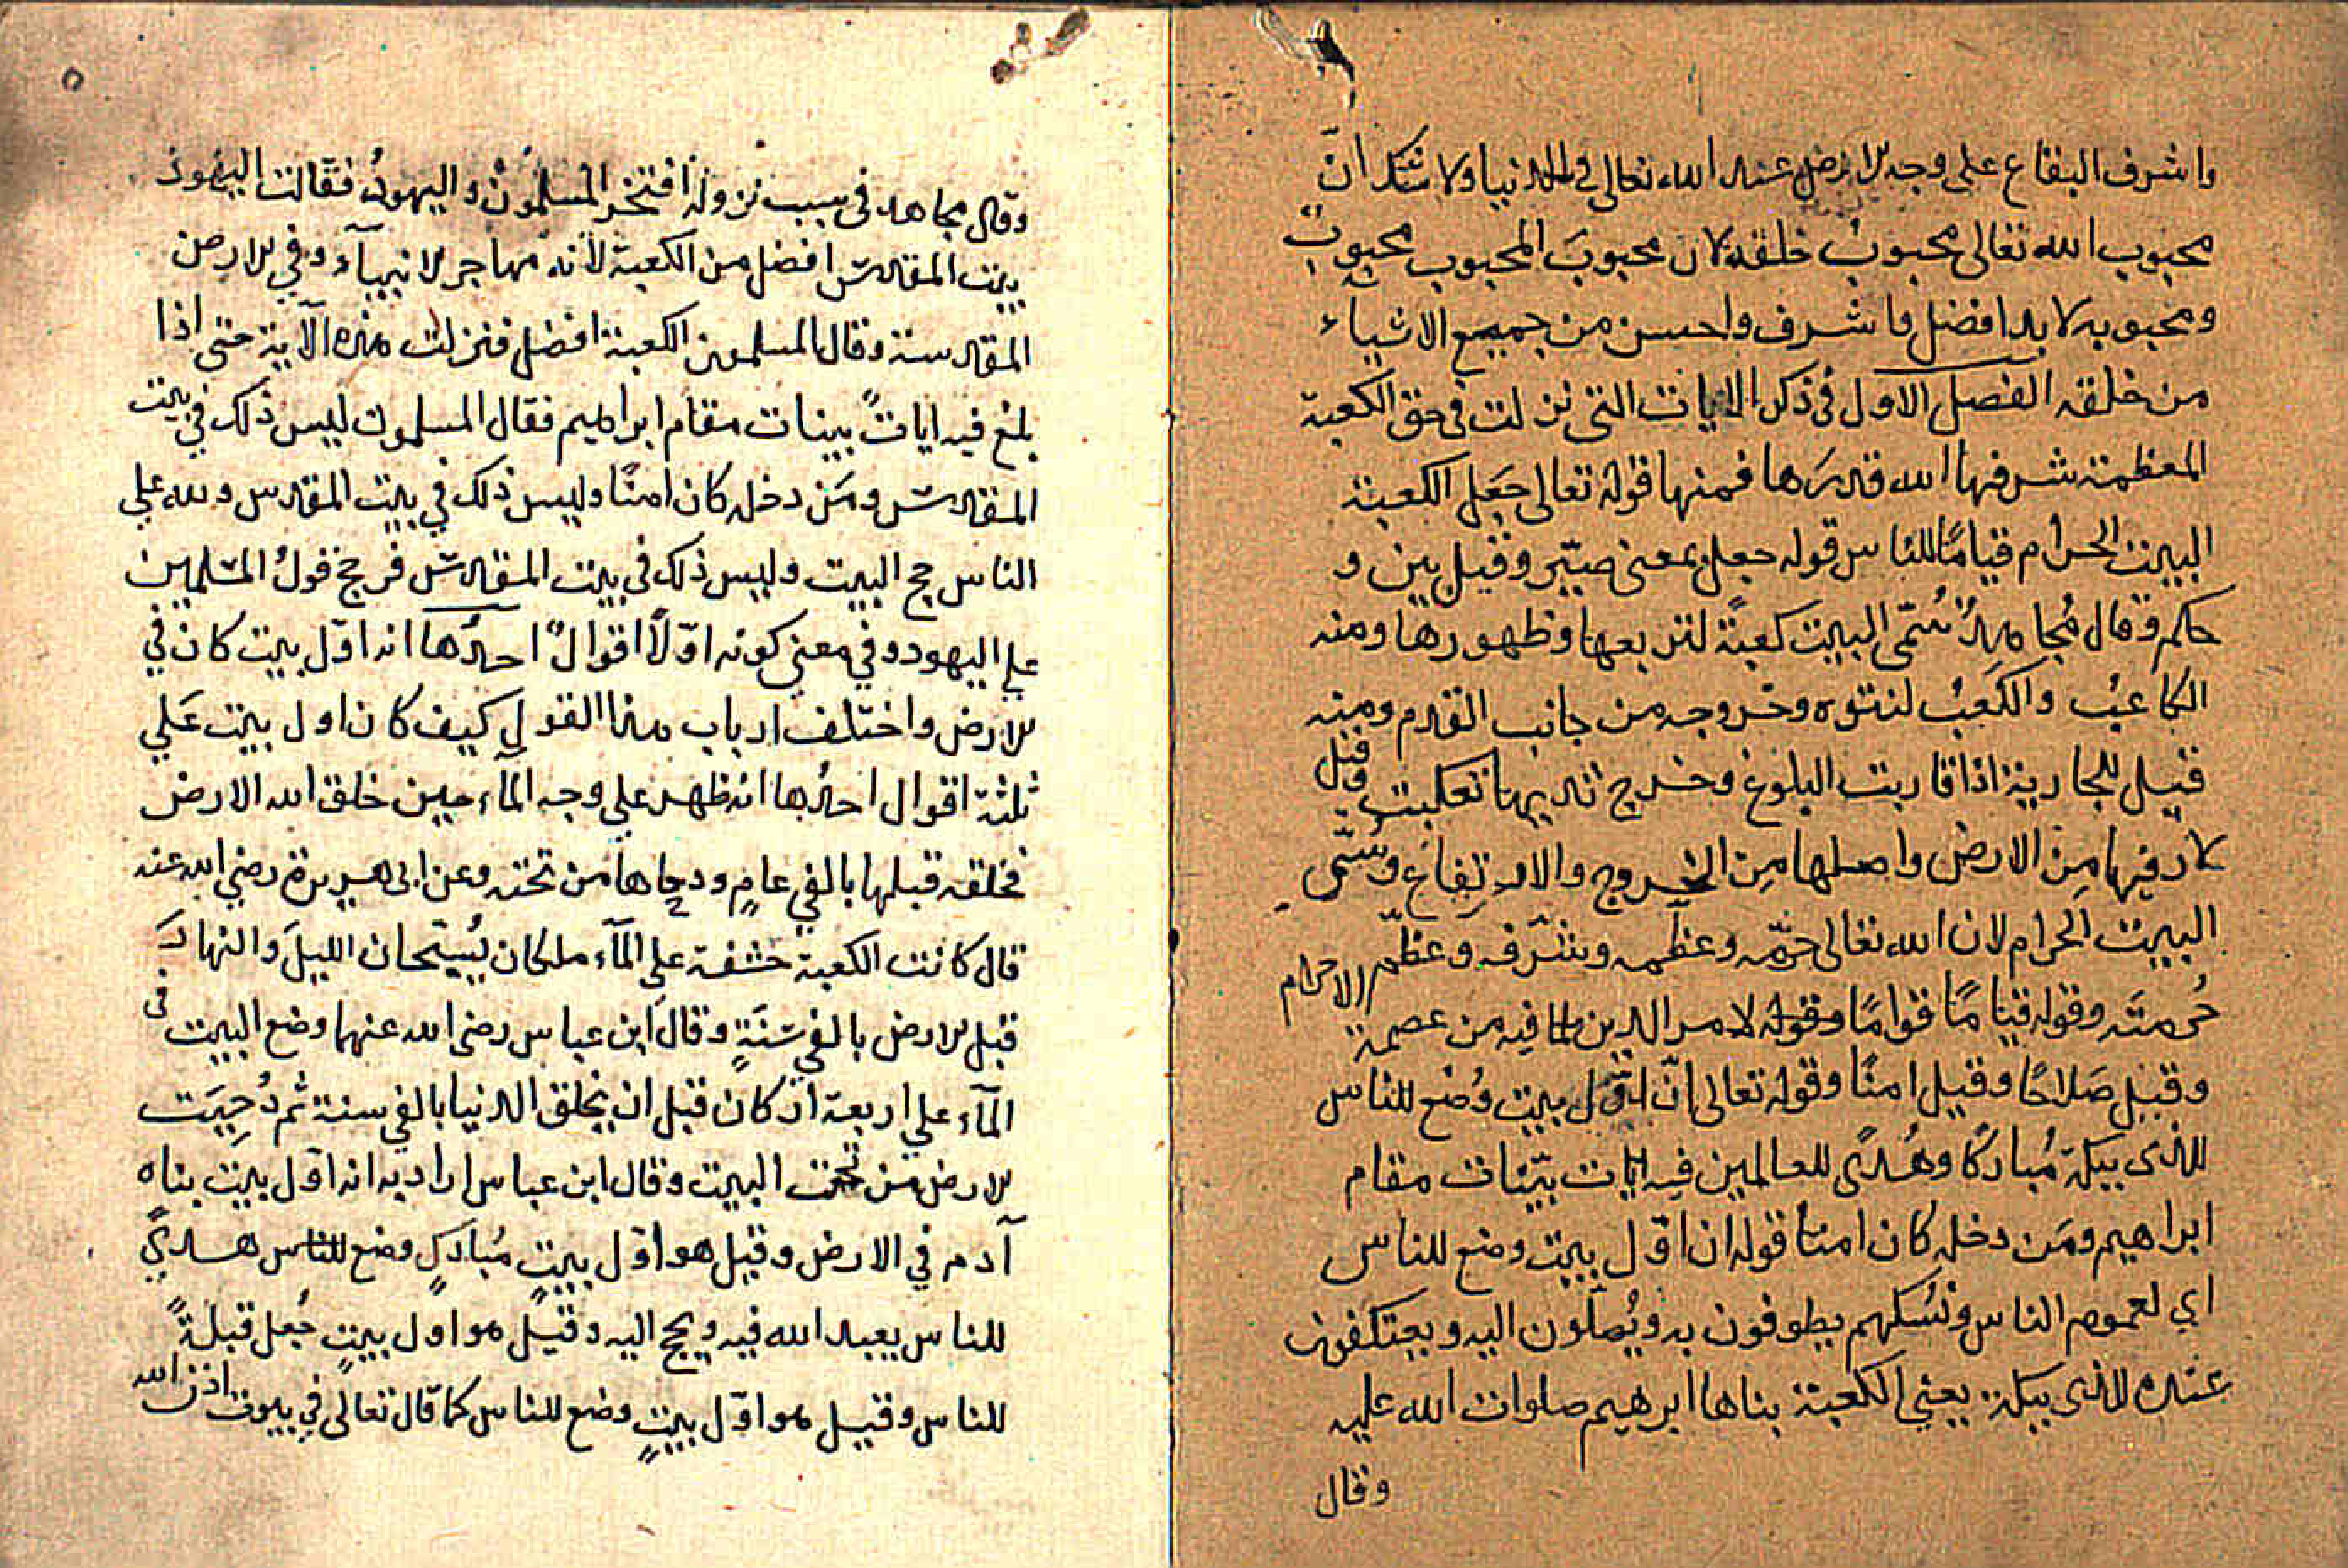 واشرف البقاع على وجه الارض عند الله تعالى في الدنيا ولا شك انّ
محبوب الله تعالى محبوبُ خلقه لان محبوبَ المحبوب محبوبٌ
ومحبوبه لا بد افضل واشرف واحسن من جميع الاشياء
من خلقه الفصل الاول في ذكر الايات التى نزلت فى حق الكعبة
المعظمة شرفها الله قدرَها فمنها قوله تعالى جَعَل الكعبة
البيت الحرام قيامًا للناس قوله جعل بمعنى صيّر وقيل بين و
حكم وقال مُجاهدٌ سُمّى البيت كعبةً لتربعها وظهورها ومنه
الكاعبُ والكَعبُ لنتوه وخروجه من جانب القدم ومنه
قيل للجارية اذا قاربت البلوغ وخرج ثديها تكعبت وقيل
لارتفاعها مِن الارض واصلها مِن الخروج والارتِفاع وسُمّى
البيت الحَرام لان الله تعالى حرّمه وعظّمه وشرّفه وعظّم
حُرمتَه وقوله قيامًا قوامًا لامر الدين لما فيه من عصمة الاحرام
وقيل صَلاحًا وقيل امنًا وقوله تعالى انّ اوّل بيت وُضع للناس
للذى ببكة مُباركًا وهُدًى للعالمين فيه ايات بيّنات مقام
ابراهيم ومَن دخله كان امنًا قوله ان اوّل بيت وضع للناس
اي لعموم الناس ونُسُكهم يطوفون به ويُصلّون اليه ويعتكفون
عنده للذى ببكة يعني الكعبة بناها ابرهيم صلوات الله عليه
وقال
٥
وقال مجاهد فى سبب نزوله افتخر المسلمونَ واليهودُ فقالت اليهود
بيت المقدس افضل من الكعبة لأنه مهاجر الانبيآء وفي الارض
المقدسة وقال المسلمون الكعبة افضل فنزلت هذه الآية حتى اذا
بلغ فيه اياتٌ بينات مقام ابراهيم فقال المسلمون ليس ذلك في بيت
المقدس ومَن دخله كان امنًا وليس ذلك في بيت المقدس ولله علي
الناس حج البيت وليس ذلك فى بيت المقدس فرجح قولُ المسلمين
علي اليهود وفي معنى كونه اوّلاً اقوالٌ احدُها انه اوّل بيت كان في
الارض واختلف ارباب هذا القولِ كيف كان اول بيت عَلي
ثلثة اقوال احدُها انه ظهر علي وجه المآء حين خلق الله الارض
فخلقه قبلها بالفي عامٍ ودحاها من تحته وعن ابى هريرة رضي الله عنه
قال كانت الكعبة خشفة علي المآء ملكان يُسبّحان الليلَ والنهارَ
قبل الارض بالفي سَنَةٍ وقال ابن عباس رضى الله عنهما وضع البيت فى
المآء علي اربعة اركان قبل ان يخلق الدنيا بالفي سنة ثم دُحِيَت
الارض من تحت البيت وقال ابن عباس اراد به انه اوّل بيت بناه
آدم في الارض وقيل هو اوّل بيتٍ مُباركٍ وضع للناس هدىً
للناس يعبد الله فيه ويحج اليه وقيل هو اوّل بيتٍ جُعل قبلةً
للناس وقيل هو اوّل بيتٍ وضع للناس كما قال تعالى في بيوت اذن الله